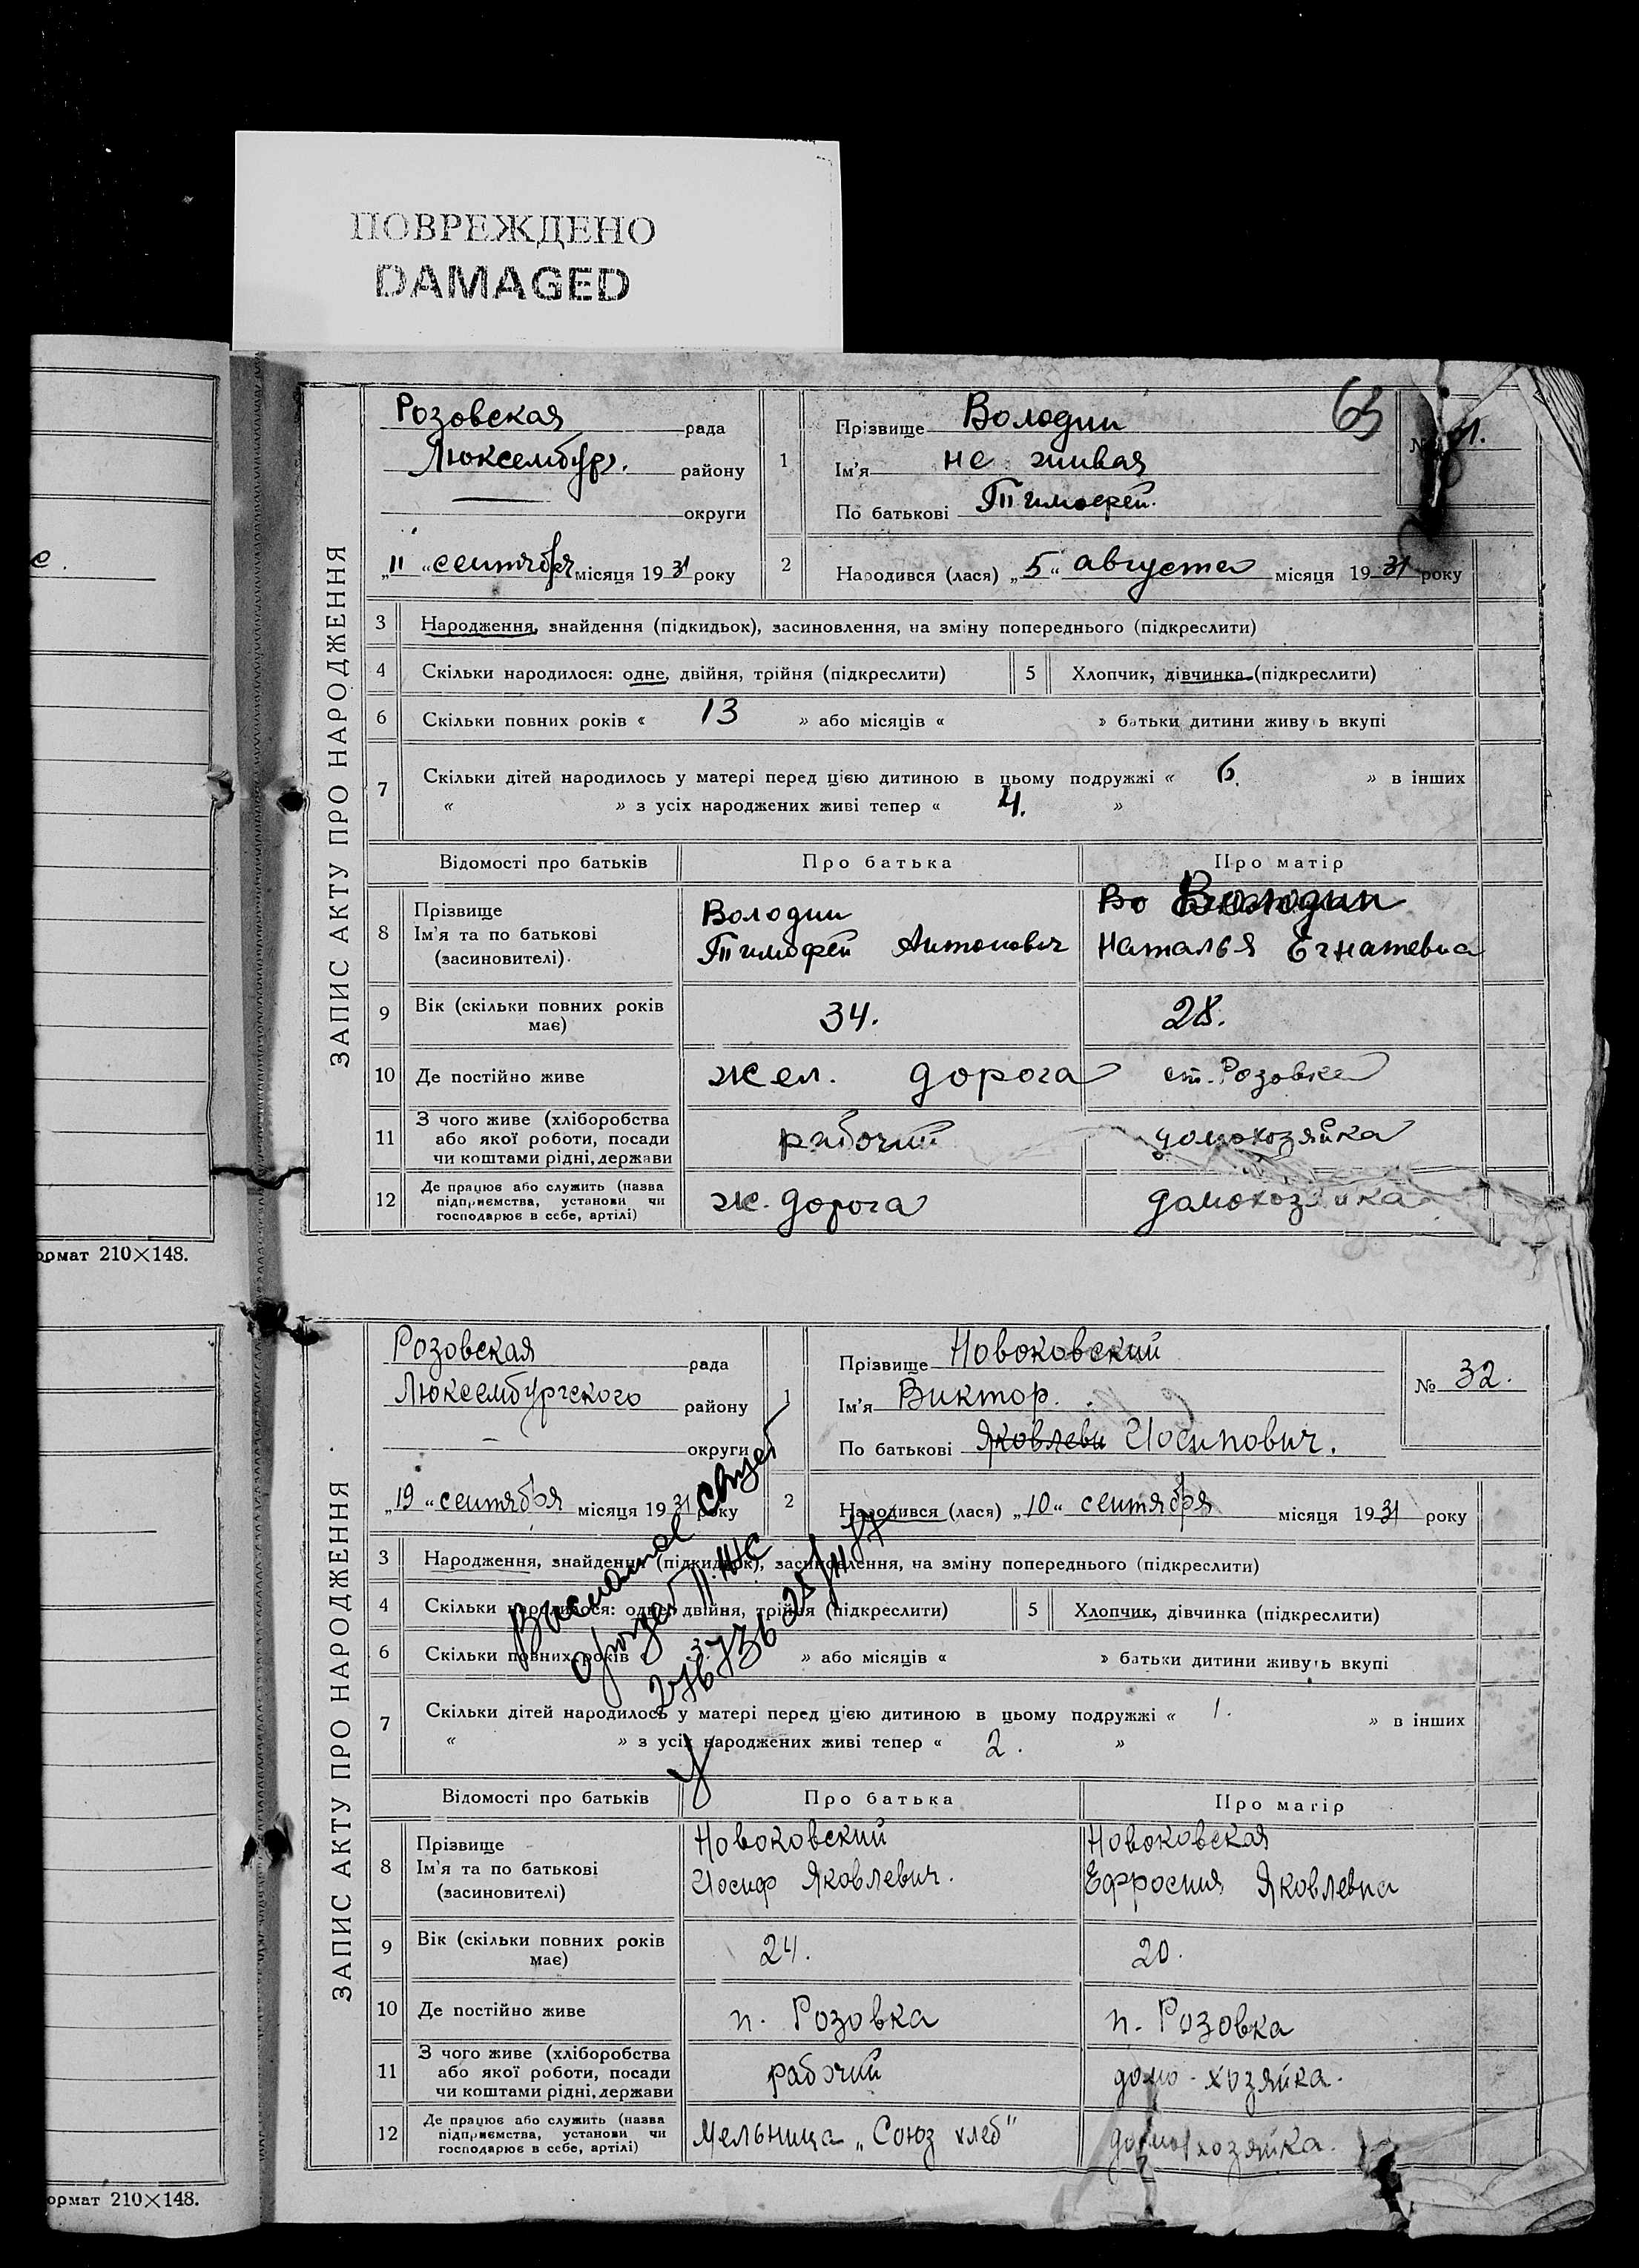 ПОВРЕЖДЕНО
DAMAGED
е.
ормат 210×148.
ормат 210×148.
ЗАПИС АКТУ ПРО НАРОДЖЕННЯ
Розовская рада
Люксембург. району
округи
„11“ сентября місяця 1931 року
1
Прізвище Володин
Ім'я не живая
По батькові Тимофей.
65
№ 31.
2
Народився (лася) „5“ августа місяця 1931 року
3 Народження, знайдення (підкидьок), засиновлення, на зміну попереднього (підкреслити)
4 Скільки народилося: одне, двійня, трійня (підкреслити)
5 Хлопчик, дівчинка (підкреслити)
6 Скільки повних років « 13 » або місяців « » батьки дитини живуть вкупі
7 Скільки дітей народилось у матері перед цією дитиною в цьому подружжі « 6. » в інших
« » з усіх народжених живі тепер « 4. »
Відомості про батьків Про батька Про матір
8 Прізвище
Ім'я та по батькові
(засиновителі).
Володин
Тимофей Антонович
Во Володин
Наталья Егнатевна
9 Вік (скільки повних років
має)
34. 28.
10 Де постійно живе жел. дорога ст. Розовка
11 З чого живе (хліборобства
або якої роботи, посади
чи коштами рідні, держави
рабочий домохозяйка
12 Де працює або служить (назва
підприємства, установи чи
господарює в себе, артілі)
ж. дорога домохозяйка
ЗАПИС АКТУ ПРО НАРОДЖЕННЯ
Розовская рада
Люксембургского району
округи
„19“ сентября місяця 1931 року
1
Прізвище Новоковский
Ім'я Виктор.
По батькові Яковлеви Иосипович.
№ 32.
2
Народився (лася) „10“ сентября місяця 1931 року
3 Народження, знайдення (підкидьок), засиновлення, на зміну попереднього (підкреслити)
4 Скільки народилося: одне, двійня, трійня (підкреслити)
5 Хлопчик, дівчинка (підкреслити)
6 Скільки повних років « 3. » або місяців « » батьки дитини живуть вкупі
7 Скільки дітей народилось у матері перед цією дитиною в цьому подружжі « 1. » в інших
« » з усіх народжених живі тепер « 2. »
Відомості про батьків Про батька Про матір
8 Прізвище
Ім'я та по батькові
(засиновителі)
Новоковский
Иосиф Яковлевич.
Новоковская
Ефросиня Яковлевна
9 Вік (скільки повних років
має)
24. 20.
10 Де постійно живе п. Розовка п. Розовка
11 З чого живе (хліборобства
або якої роботи, посади
чи коштами рідні, держави
рабочий домо-хозяйка.
12 Де працює або служить (назва
підприємства, установи чи
господарює в себе, артілі)
Мельница „Союз хлеб" домохозяйка.